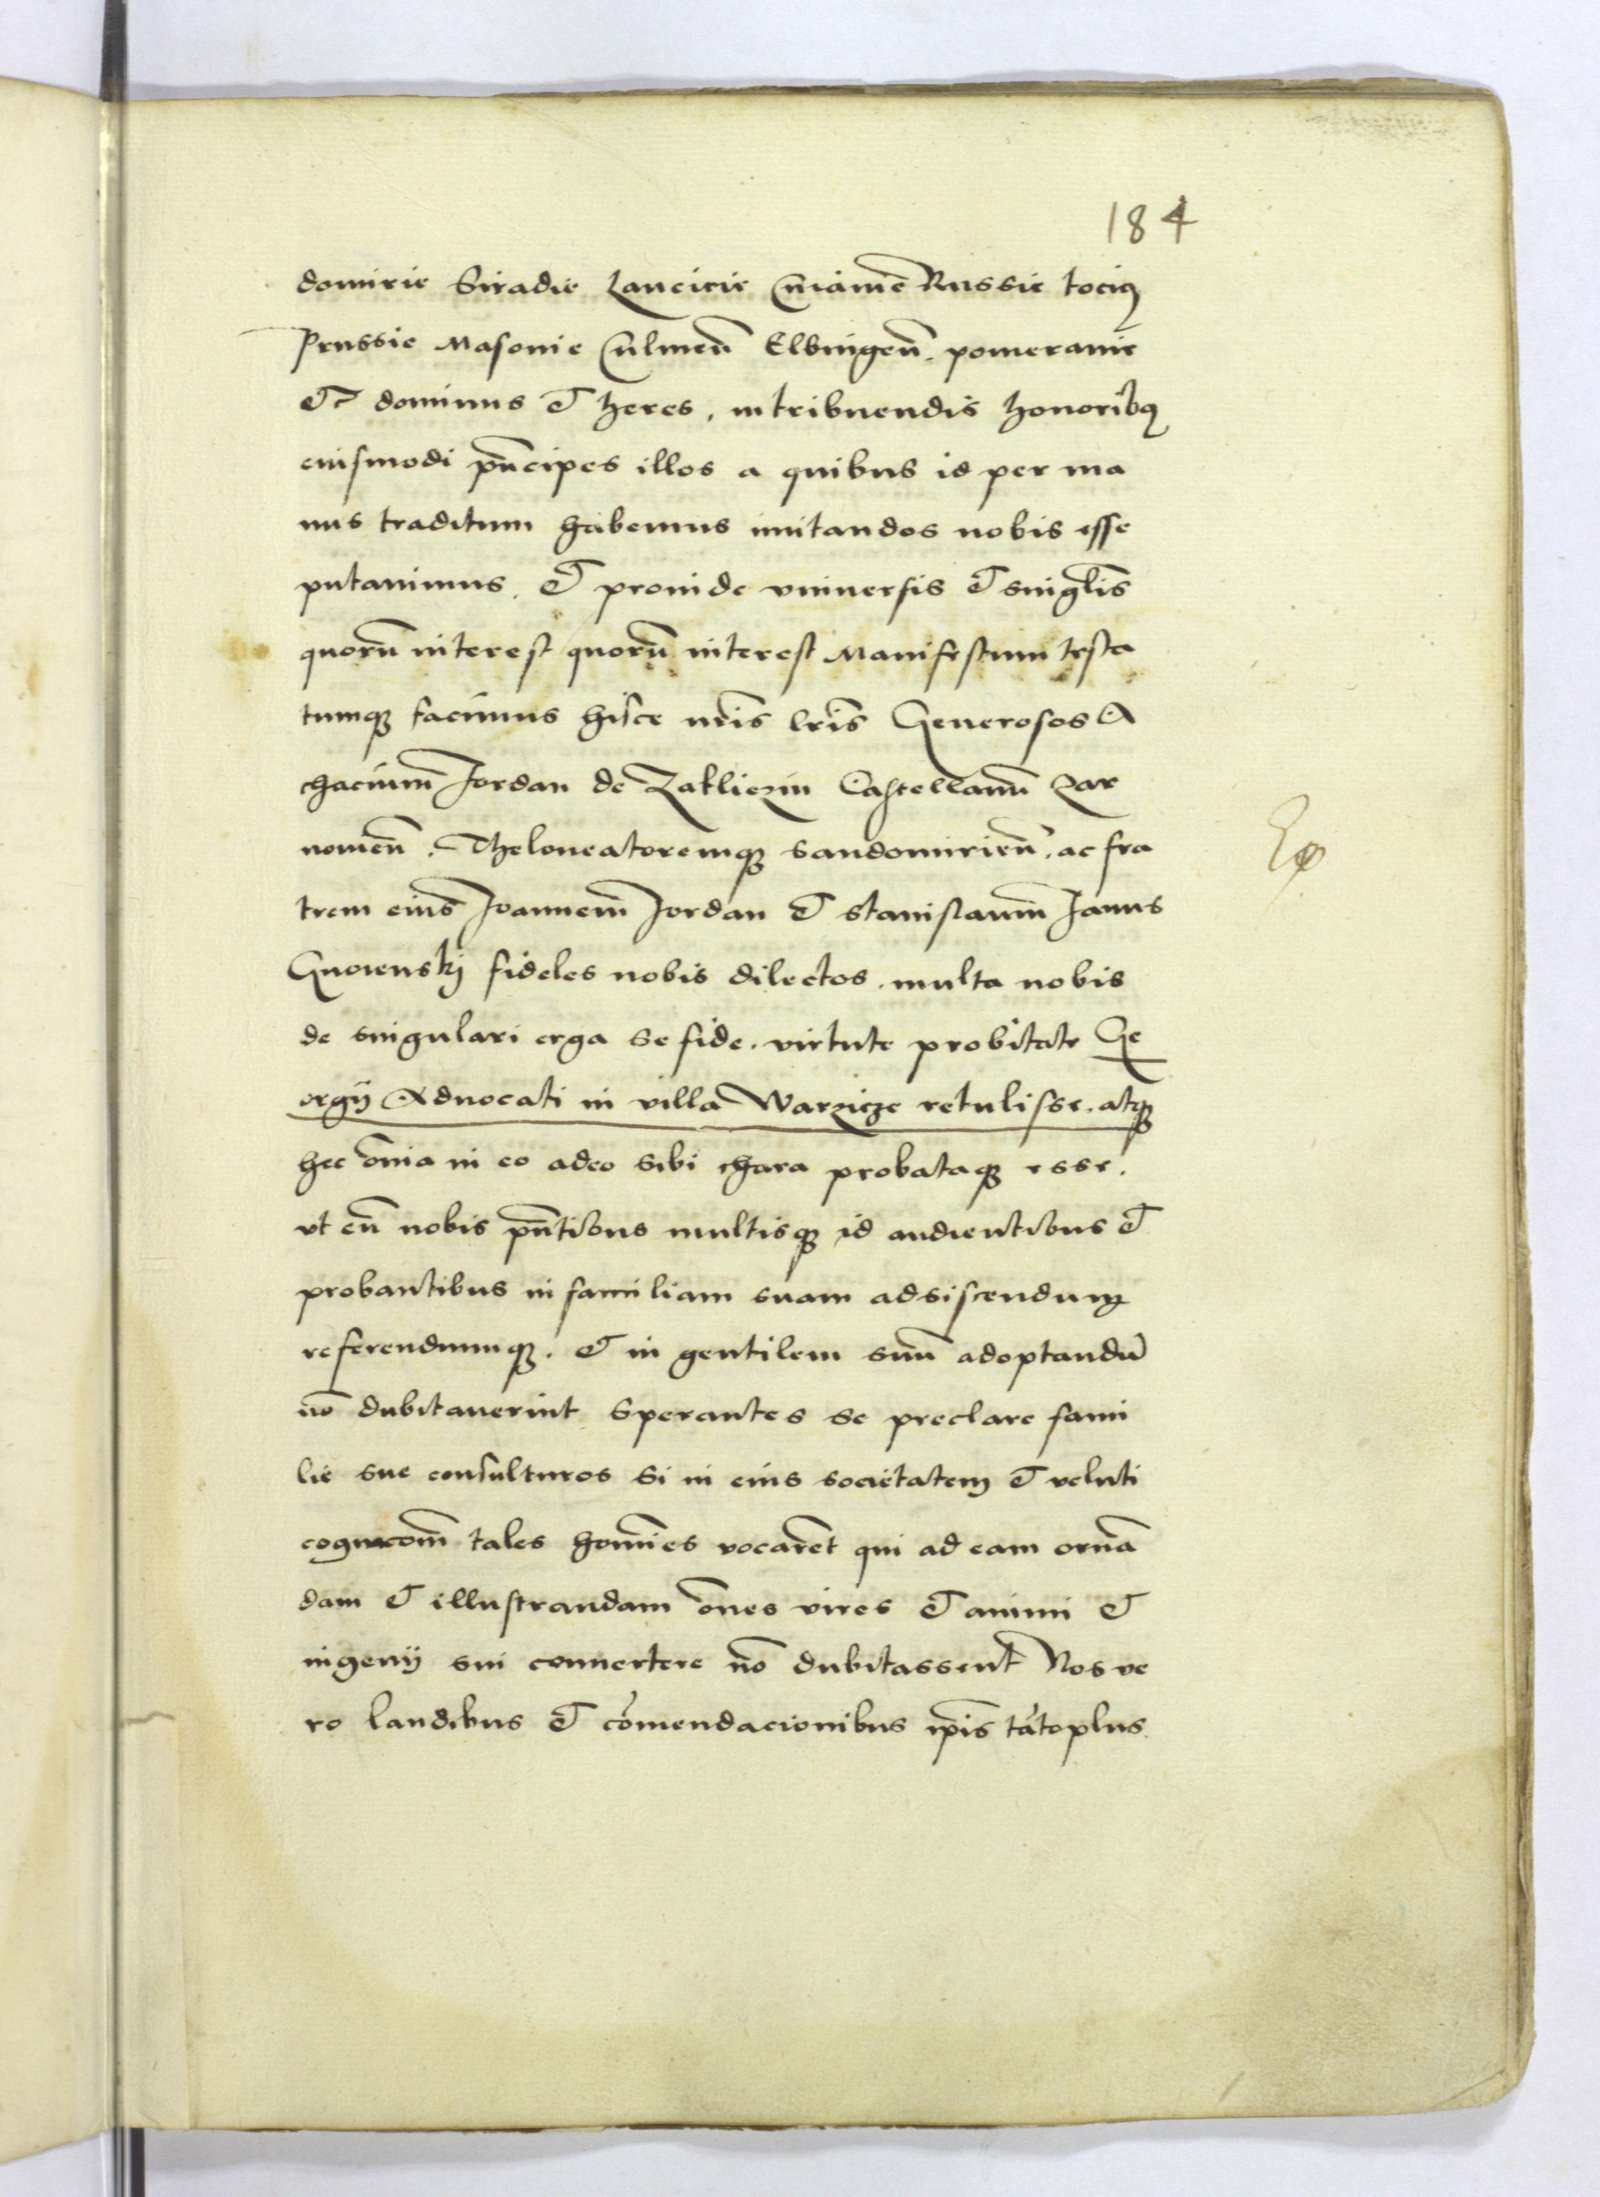 184
domirie Siradie Lancicie Cuiauie Russie tociq
Prussie Masouie Culmeñ Elbingeñ. pomeranie
Etc dominus Et heres, in tribuendis honoribq
eiusmodi pn̄cipes illos a quibus id per ma
nus traditum habemus imitandos nobis esse
putauimus. Et proinde vniuersis Et singlis
quorū interest quorū interest Manifestum testa
tumqꝫ facimus hisce nr̄is lr̄is Generosos A
chacium Jordan de Zakliczin Castellanū Zar
nouieñ. Theloneatoremqꝫ Sandomirieñ. ac fra
trem eius Joannem Jordan Et Stanislaum Janus
Gnoienskij fideles nobis dilectos. multa nobis
de singulari erga se fide. virtute probitate Ge
orgij Aduocati in villa Warzicze retulisse. atqꝫ
hec ōnia in eo adeo sibi chara probataqꝫ esse.
vt eū nobis pn̄tibus multisqꝫ id audientibus Et
probantibus in familiam suam adsiscendum
referendumqꝫ. Et in gentilem suū adoptandū
nō dubitauerint Sperantes se preclare fami
lie sue consulturos Si in eius societatem Et veluti
tales homīes vocarēt qui ad eam ornā
dam Et illustrandam ōnes vires Et animi Et
ingenij sui conuertere nō dubitassent Nos ve
ro laudibus Et cōmendacionibus ipīs tātoplus